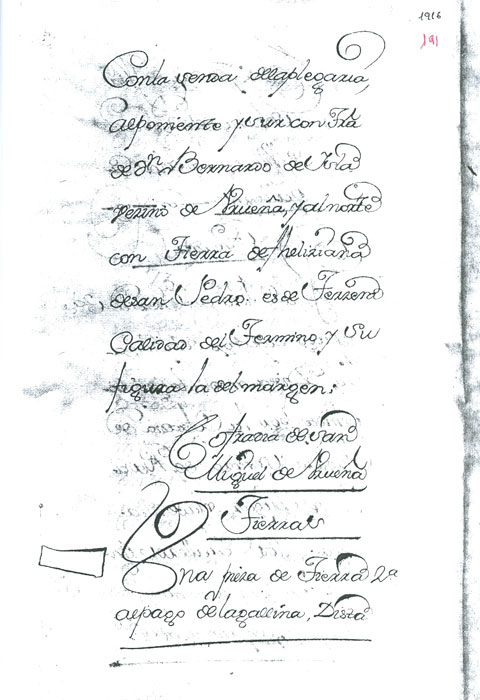 1916
191
Con la senda de la plegaria,
al poniente y sur con Tra
de Dn Bernardo de Isla
vezino de Nueña, y al norte
con Tierra de Feliziana
de san Pedro es de Terzera
Calidad del Termino y su
figura la del margen:
Cofradia de san
Miguel de Nueña
Tierras
Una pieza de Tierra 2a
al pago de la gallina, Dista